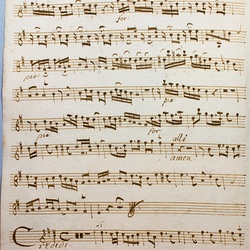 for:
pia:
pia:
pia:
for:
allo
amen
Credidi